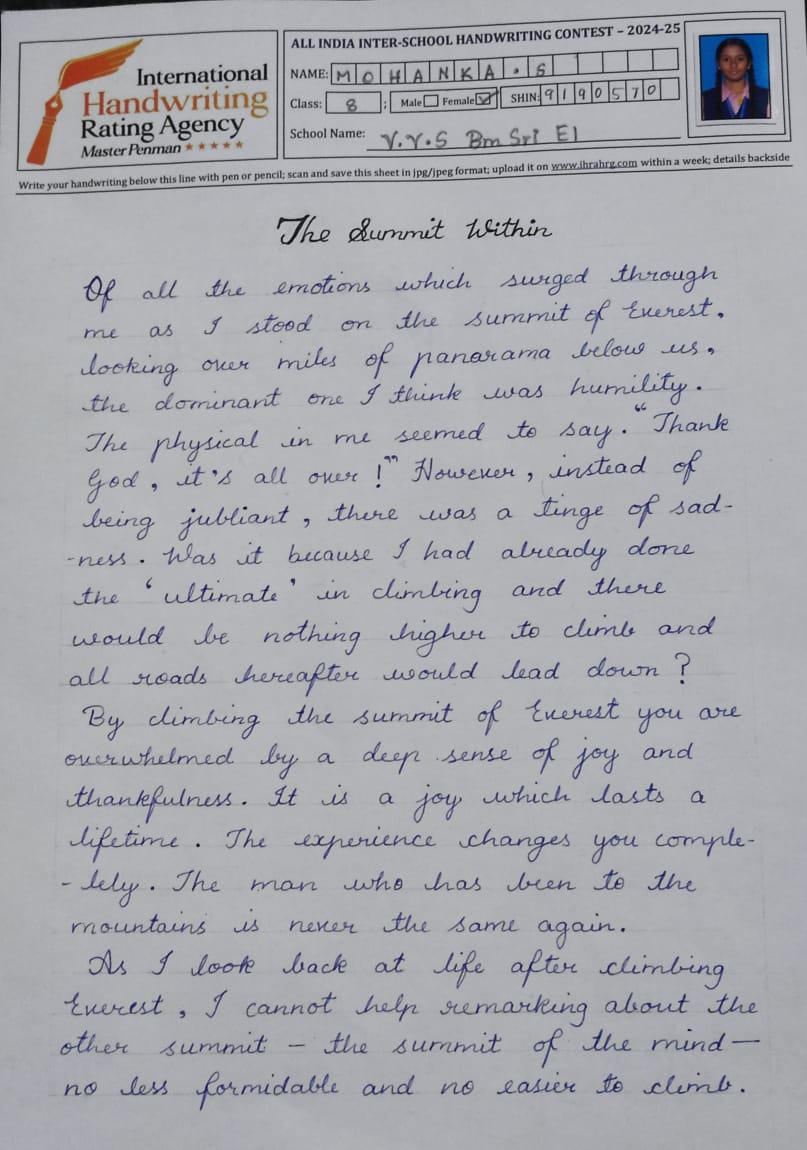 International
Handwriting
Rating Agency
Master Penman ★★★★★
ALL INDIA INTER-SCHOOL HANDWRITING CONTEST – 2024-25
NAME: MOHANKA.S
Class: 8 ; Male Female ✓ SHIN: 9190570
School Name: V.V.S Bm Sri El
Write your handwriting below this line with pen or pencil; scan and save this sheet in jpg/jpeg format; upload it on www.ihrahrg.com within a week; details backside
The Summit Within
Of all the emotions which surged through
me as I stood on the summit of Everest,
looking over miles of panarama below us,
the dominant one I think was humility.
The physical in me seemed to say. “Thank
God, it's all over!” However, instead of
being jubliant, there was a tinge of sad-
-ness. Was it because I had already done
the ‘ultimate’ in climbing and there
would be nothing higher to climb and
all roads hereafter would lead down?
By climbing the summit of Everest you are
overwhelmed by a deep sense of joy and
thankfulness. It is a joy which lasts a
lifetime. The experience changes you comple-
-lely. The man who has been to the
mountains is never the same again.
As I look back at life after climbing
Everest, I cannot help remarking about the
other summit – the summit of the mind —
no less formidable and no easier to climb.